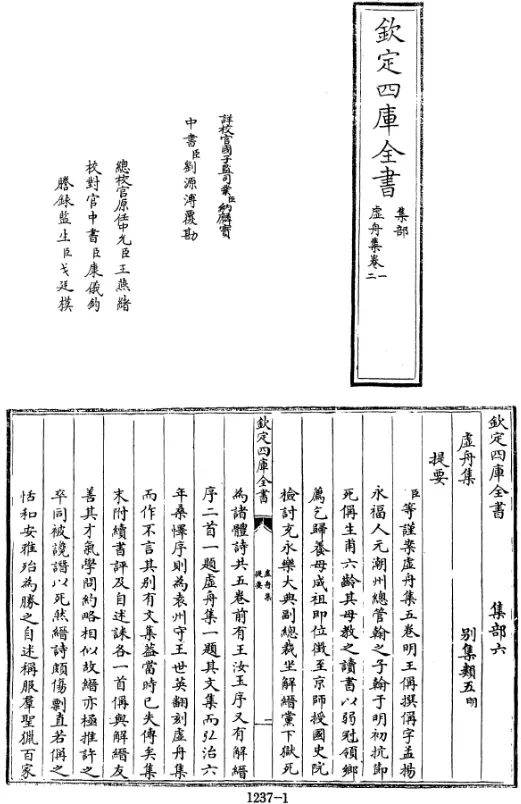 欽定四庫全書
集部
虛舟集卷一二
詳校官國子監司業臣納麟寶
中書臣劉源溥覆勘
總校官原任中允臣王燕緒
校對官中書臣康儀鈞
謄錄監生臣戈廷模
欽定四庫全書 集部六
虛舟集 別集類五明
提要
臣等謹案虛舟集五卷明王偁撰偁字孟揚
永福人元潮州總管翰之子翰于明初抗節
死偁生甫六齡其母教之讀書以弱冠領鄉
薦乞歸養母成祖即位徵至京師授國史院
檢討充永樂大典副總裁坐解縉黨下獄死
欽定四庫全書
虛舟集
提要
一
為諸體詩共五卷前有王汝玉序又有解縉
序二首一題虛舟集一題其文集而弘治六
年桑悸序則為袁州守王世英翻刻虛舟集
而作不言其別有文集蓋當時已失傳矣集
末附續書評及自述誄各一首偁與解縉友
善其才氣學問約略相似故縉亦極推許之
卒同被讒譖以死然縉詩頗傷剽直若偁之
恬和安雅殆為勝之自述稱服羣聖獵百家
1237-1